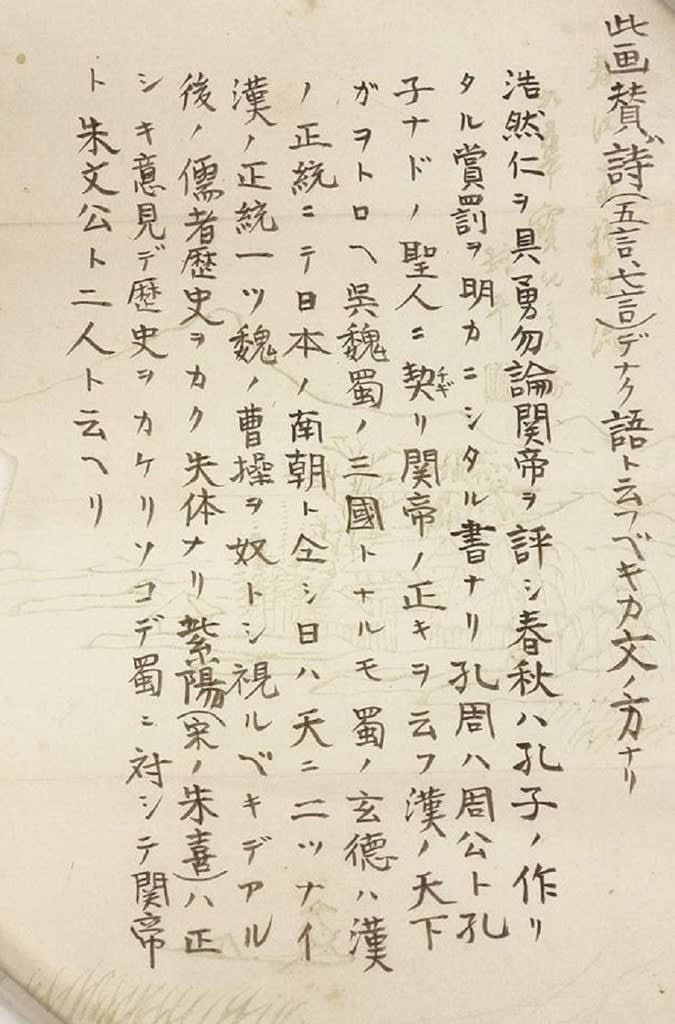 此画賛、詩(五言、七言)デナク語ト云フベキカ文ノ方ナリ
浩然仁ヲ具勇勿論関帝ヲ評シ春秋ハ孔子ノ作リ
タル賞罰ヲ明カニシタル書ナリ孔周ハ周公ト孔
子ナドノ聖人ニ契チギリ関帝ノ正キヲ云フ漢ノ天下
ガヲトロヘ呉魏蜀ノ三國トナルモ蜀ノ玄徳ハ漢
ノ正統ニテ日本ノ南朝ト仝シ日ハ天ニ二ツナイ
漢ノ正統一ツ魏ノ曹操ヲ奴トシ視ルベキデアル
後ノ儒者歴史ヲカク失体ナリ紫陽(宋ノ朱喜)ハ正
シキ意見デ歴史ヲカケリソコデ蜀ニ対シテ関帝
ト朱文公ト二人ト云ヘリ